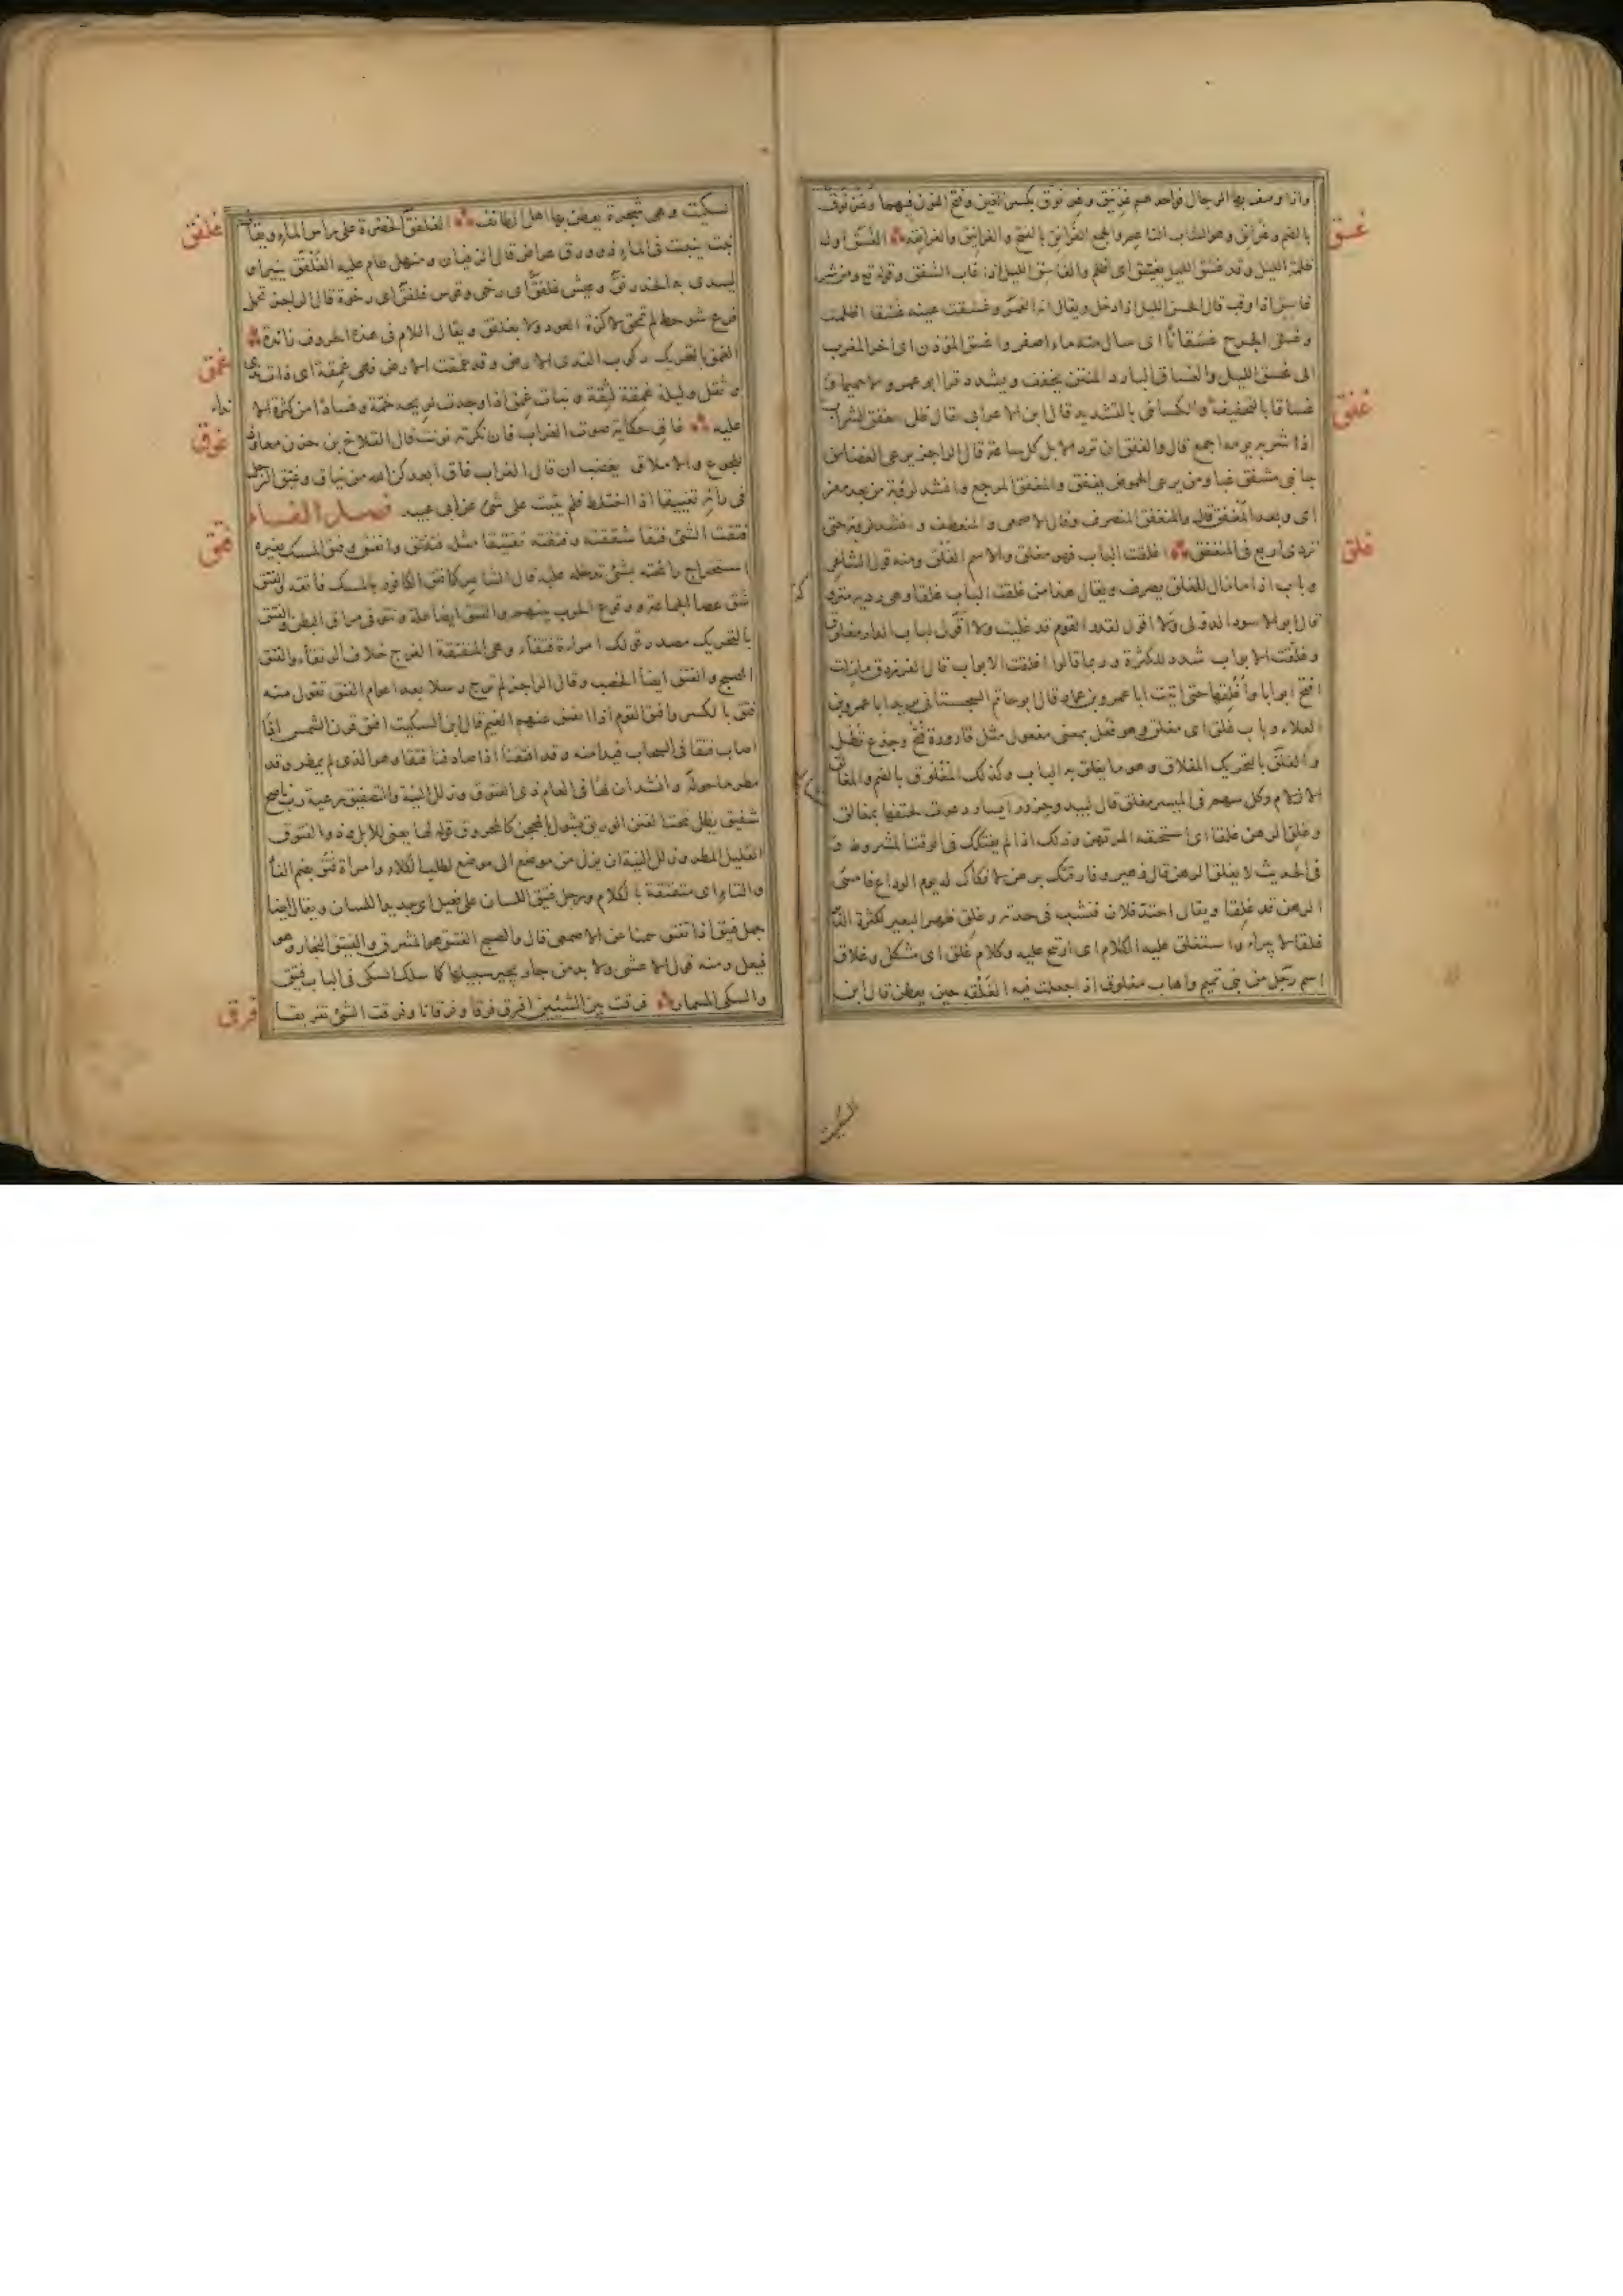 واذا وصف بها الرجال فواحدهم غرنيق وغرنوق بكسر الغين وفتح النون فيهما وغرنوق
بالضم وغرانق وهو الشاب الناعم والجمع الغرانق بالفتح والغرانيق والغرانقة الغسق اول
غسق
ظلمة الليل وقد غسق الليل يغسق اى اظلم والغاسق الليل اذا غاب الشفق وقوله تع ومن شر
غاسق اذا وقب قال الحسن الليل اذا دخل ويقال انه القمر وغسقت عينه غسقا اظلمت
وغسق الجرح غسقانا اى سال منه ماء اصفر واغسق المؤذن اى اخر المغرب
الى غسق الليل والغساق البارد المنتن يخفف ويشدد قرا ابو عمرو الا حميما و
غفق
غساقا بالتخفيف والكسائى بالتشديد قال ابن الاعرابى يقال ظل يتغفق الشراب
اذا شربه يومه اجمع قال والغفق ان ترد الابل كل ساعة قال الراجز يرعى الغضا من
جانبى مشفق غبا ومن يرعى الحموض يغفق والمنغفق المرجع وانشد لرؤبة من بعد مغز
اى وبعد المغفق قال والمنغفق المنصرف وقال الاصمعى المنعطف وانشد لرؤبة حتى
تردى اربع فى المنغفق اغلقت الباب فهو مغلق والاسم الغلق ومنه قول الشاعر
غلق
وباب اذا ما مال للغلق يصرف ويقال هذا من غلقت الباب غلقا وهى ردية متروكة
قال ابو الاسود الدؤلى ولا اقول لقدر القوم قد غليت ولا اقول لباب الدار مغلوق
وغلقت الابواب شدد للكثرة وربما قالوا اغلقت الابواب قال الفرزدق ما زلت
افتح ابوابا واغلقها حتى اتيت ابا عمرو بن عمار قال ابو حاتم السجستانى يريد ابا عمرو بن
العلاء وباب غلق اى مغلق وهو فعل بمعنى مفعول مثل قارورة فتح وجذع قطل
والغلق بالتحريك المغلاق وهو ما يغلق به الباب وكذلك المغلوق بالضم والمغلق
الازلام وكل سهم فى الميسر مغلق قال لبيد وجزور ايسار دعوت لحتفها بمغالق
وغلق الرهن غلقا اى استحقه المرتهن وذلك اذا لم يفتكك فى الوقت المشروط و
فى الحديث لا يغلق الرهن قال زهير وفارقتك برهن لا فكاك له يوم الوداع فامسى
الرهن قد غلقا ويقال احتد فلان فنشب فى حدته وغلق ظهر البعير لكثرة الدبر
غلقا لا يبرأ واستغلق عليه الكلام اى ارتج عليه وكلام غلق اى مشكل وغلاق
اسم رجل من بنى تميم واهاب مغلوق اذا جعلت فيه الغلقة حين يعطن قال ابن
السكيت
سكيت وهى شجرة يعطن بها اهل الطائف الغلفق الخضرة على راس الماء ويقال
غلفق
نبت ينبت فى الماء ذو ورق عراض قال الزفيان ومنهل طام عليه الغلفق ينير او
يسدى به الخدرنق وعيش غلفق اى رخى وقوس غلفق اى رخوة قال الراجز تحمل
فرع شوحط لم تمحق لا كزة العود ولا بغلفق ويقال اللام فى هذه الحروف زائدة
غمق
الغمق بالتحريك ركوب الندى الارض وقد غمقت الارض فهى غمقة اى ذات ندى
وثقل وليلة غمقة لثقة ونبات غمق اذا وجدت لريحه خمة وفسادا من كثرة الا
نداء
عليه غاق حكاية صوت الغراب فان نكرته نونت قال القلاخ بن حزن معاود
غوق
للجوع والاملاق يغضب ان قال الغراب غاق ابعدكن الله من نياق وغيق الرجل
فى رأيه تغييقا اذا اختلط فلم يثبت على شئ عن ابى عبيد فصل الفاء
فتق
فتقت الشئ فتقا شققته وفتقته تفتيقا مثل فتفتق وانفتق وفتق المسك بغيره
استخراج رائحته بشئ تدخله عليه قال الشاعر كما فتق الكافور بالمسك فاتقه والفتق
شق عصا الجماعة ووقوع الحرب بينهم والفتق ايضا علة ونتو فى مراق البطن والفتق
بالتحريك مصدر قولك امراة فتقاء وهى المنفتقة الفرج خلاف الرتقاء والفتق
الصبح والفتق ايضا الخصب وقال الراجز لم ترج رسلا بعد اعوام الفتق تقول منه
فتق بالكسر وافتق القوم اذا انفتق عنهم الغيم قال ابن السكيت افتق قرن الشمس اذا
اصاب فتقا فى السحاب فبدا منه وقد افتقنا اذا صادفنا فتقا وهو الذى لم يمطر وقد
مطر ما حوله وانشد ان لها فى العام ذى الفتوق وزلل النية والتصفيق رعية رب ناصح
شفيق يظل تحت الفنن الوريق يشول بالمحجن كالمحروق قوله لها يعنى للابل وذو الفتوق
القليل المطر وزلل النية ان يزل من موضع الى موضع لطلب الكلاء وامراة فتق بضم الفاء
والتاء اى متفتقة بالكلام ورجل فتيق اللسان على فعيل اى حديد اللسان ويقال ايضا
جمل فتيق اذا تفتق سمنا عن الاصمعى قال والصبح الفتيق هو المشرق والفيتق النجار وهو
فيعل ومنه قول الاعشى ولا بد من جار يجير سبيلها كما سلك السكى فى الباب فيتق
والسكى المسمار فرقت بين الشيئين افرق فرقا وفرقانا وفرقت الشئ تفريقا
فرق